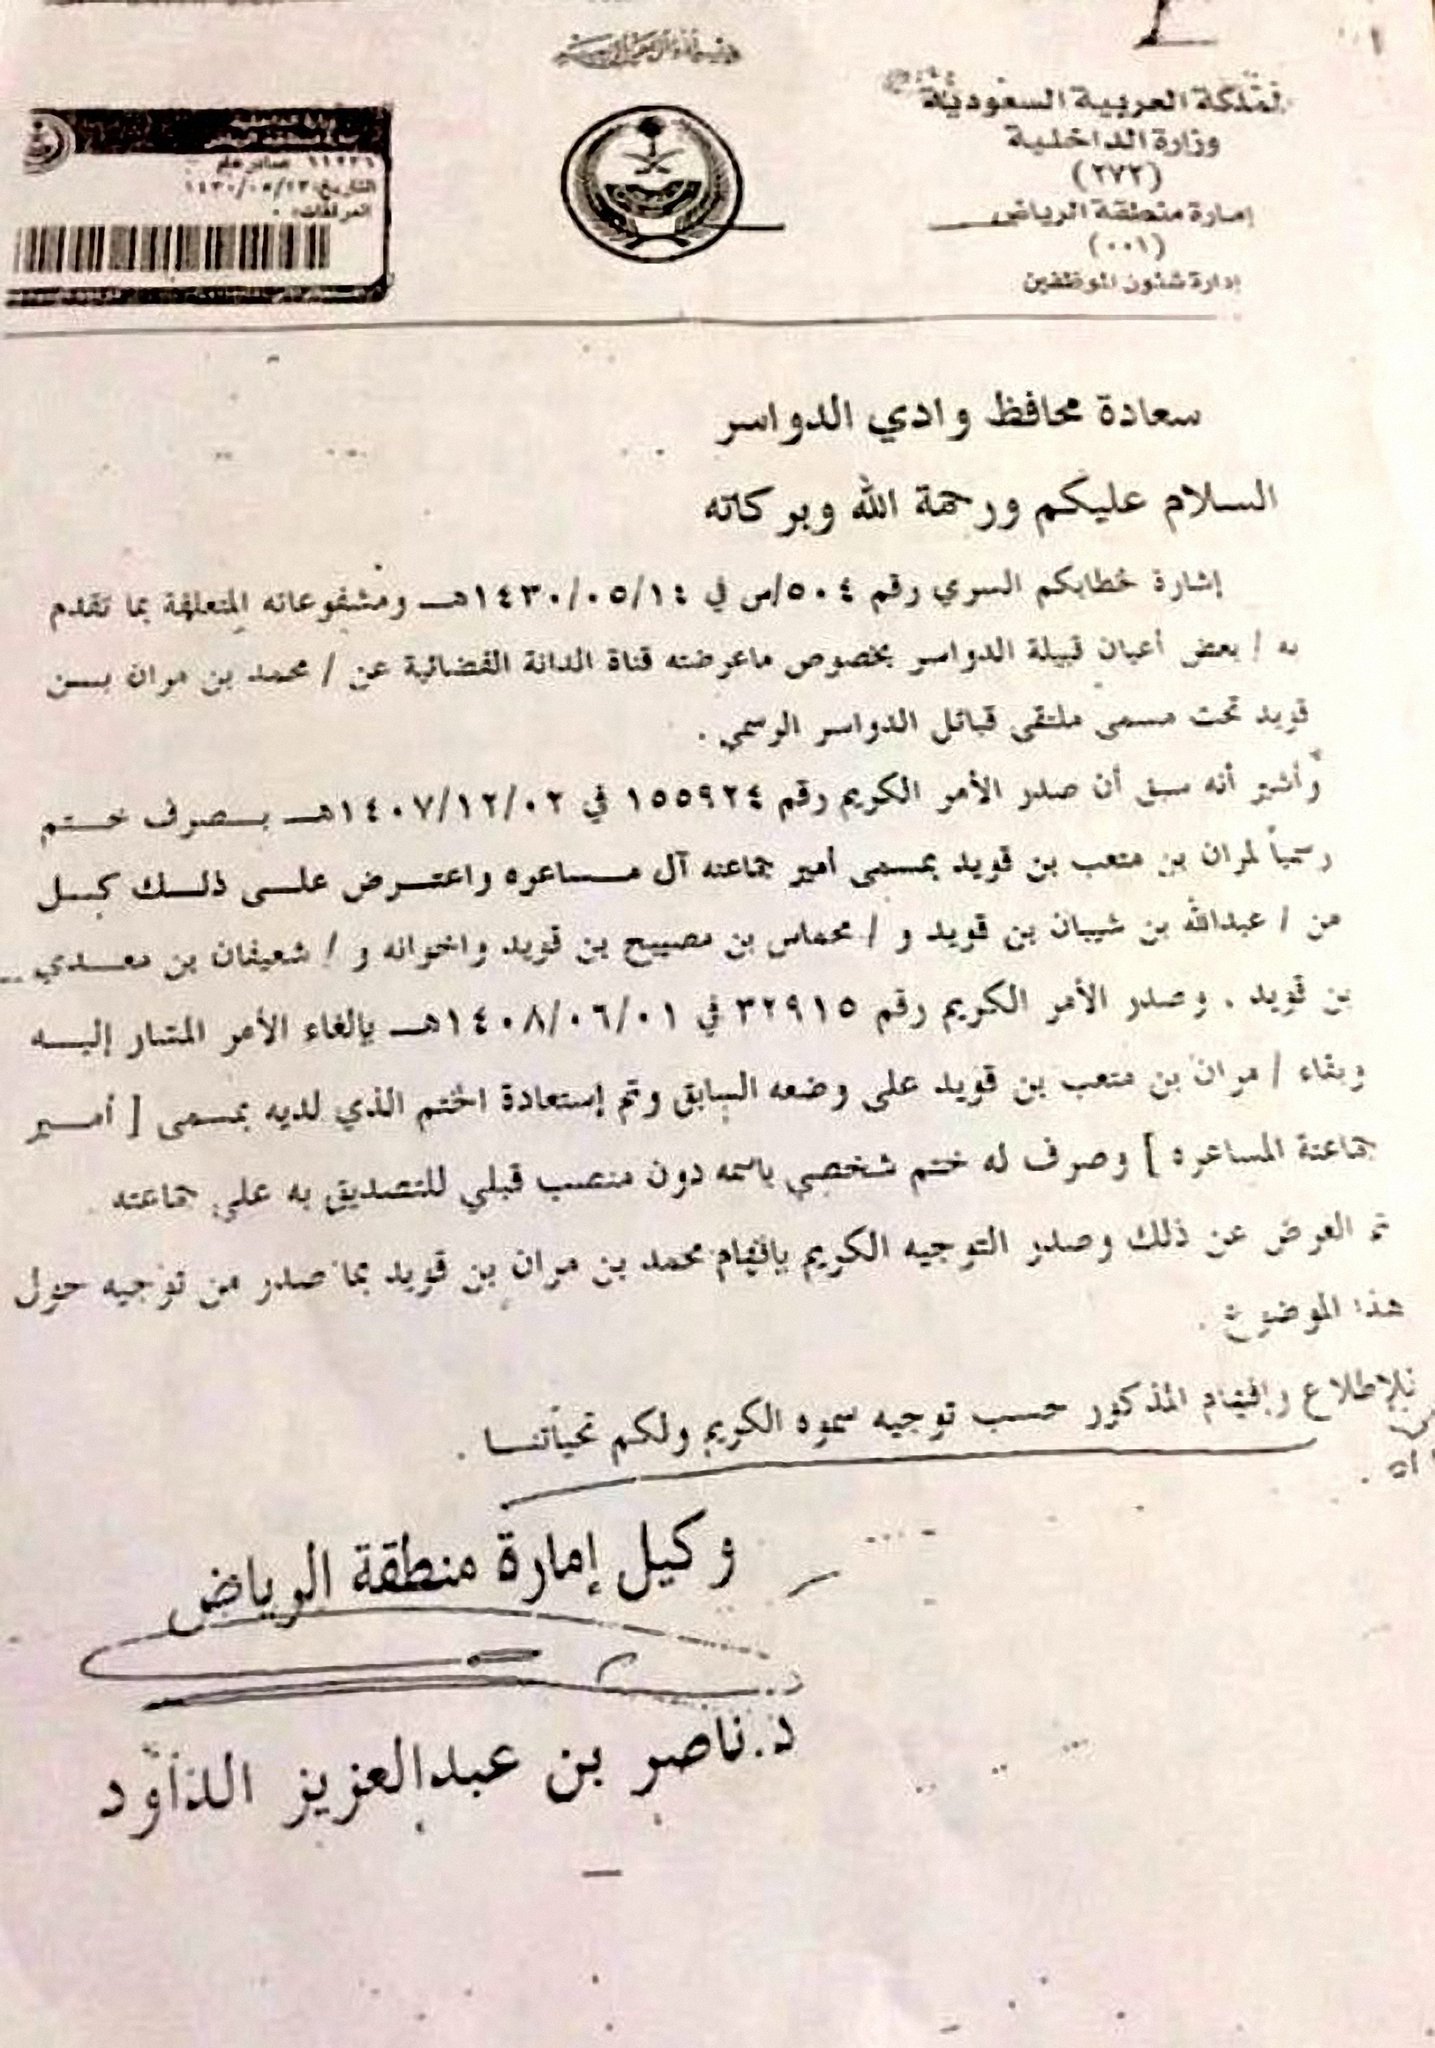 بسم الله الرحمن الرحيم
المملكة العربية السعودية
وزارة الداخلية
(٢٧٢)
إمارة منطقة الرياض
(٠٠١)
إدارة شئون الموظفين
صادر عام
التاريخ:
المرفقات: ٠
سعادة محافظ وادي الدواسر
السلام عليكم ورحمة الله وبركاته
إشارة خطابكم السري رقم ٥٠٤/س في ١٤٣٠/٠٥/١٤هـ ومشفوعاته المتعلقة بما تقدم
به / بعض أعيان قبيلة الدواسر بخصوص ماعرضته قناة الدانة الفضائية عن / محمد بن مران بن
قويد تحت مسمى ملتقى قبائل الدواسر الرسمي .
وأشير أنه سبق أن صدر الأمر الكريم رقم ١٥٥٩٢٤ في ١٤٠٧/١٢/٠٢هـ بصرف ختم
رسمياً لمران بن متعب بن قويد بمسمى أمير جماعته آل مساعره واعترض على ذلك كل
من / عبدالله بن شيبان بن قويد و / محماس بن مصيبيح بن قويد واخوانه و / شعيفان بن معدي
بن قويد . وصدر الأمر الكريم رقم ٣٢٩١٥ في ١٤٠٨/٠٦/٠١هـ بإلغاء الأمر المشار إليه
وبقاء / مران بن متعب بن قويد على وضعه السابق وتم إستعادة الختم الذي لديه بمسمى [ أمير
جماعتة المساعره ] وصرف له ختم شخصي باسمه دون منصب قبلي للتصديق به على جماعته .
تم العرض عن ذلك وصدر التوجيه الكريم بإفهام محمد بن مران بن قويد بما صدر من توجيه حول
هذا الموضوع .
للإطلاع وإفهام المذكور حسب توجيه سموه الكريم ولكم تحياتنا .
وكيل إمارة منطقة الرياض
د.ناصر بن عبدالعزيز الداود